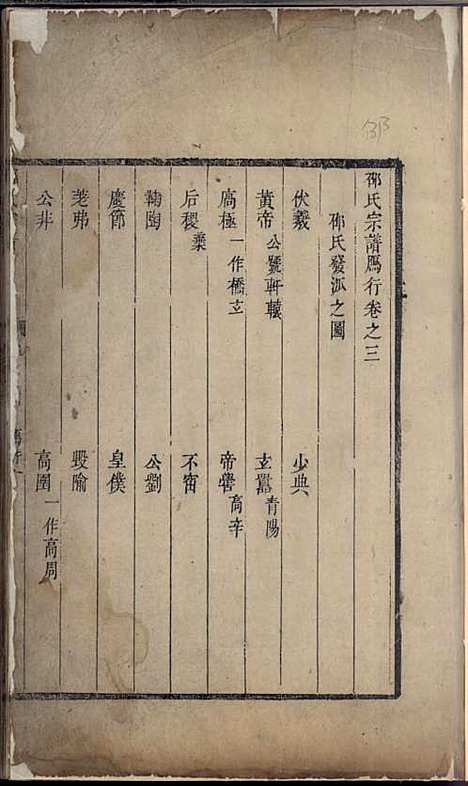 邵氏宗譜鴈行卷之三
邵氏發派之圖
伏羲 少典
黄帝 公號軒轅 玄囂 青陽
高極 一作橋玄 帝嚳 高辛
后稷 棄 不窋
鞠陶 公劉
慶節 皇僕
羌弗 毀隃
公非 高圉 一作高周